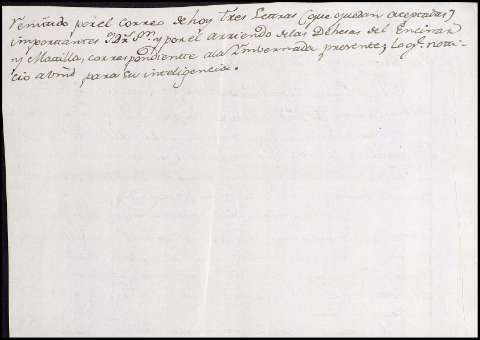 Remitido por el correo de hoy tres Letras (que quedan aceptadas)
importantes y por el arriendo de las Dehesas del Encinar
y Matilla, correspondiente a la Ymbernada presente; Lo q.e noti-
cio a Vmd para su inteligencia.